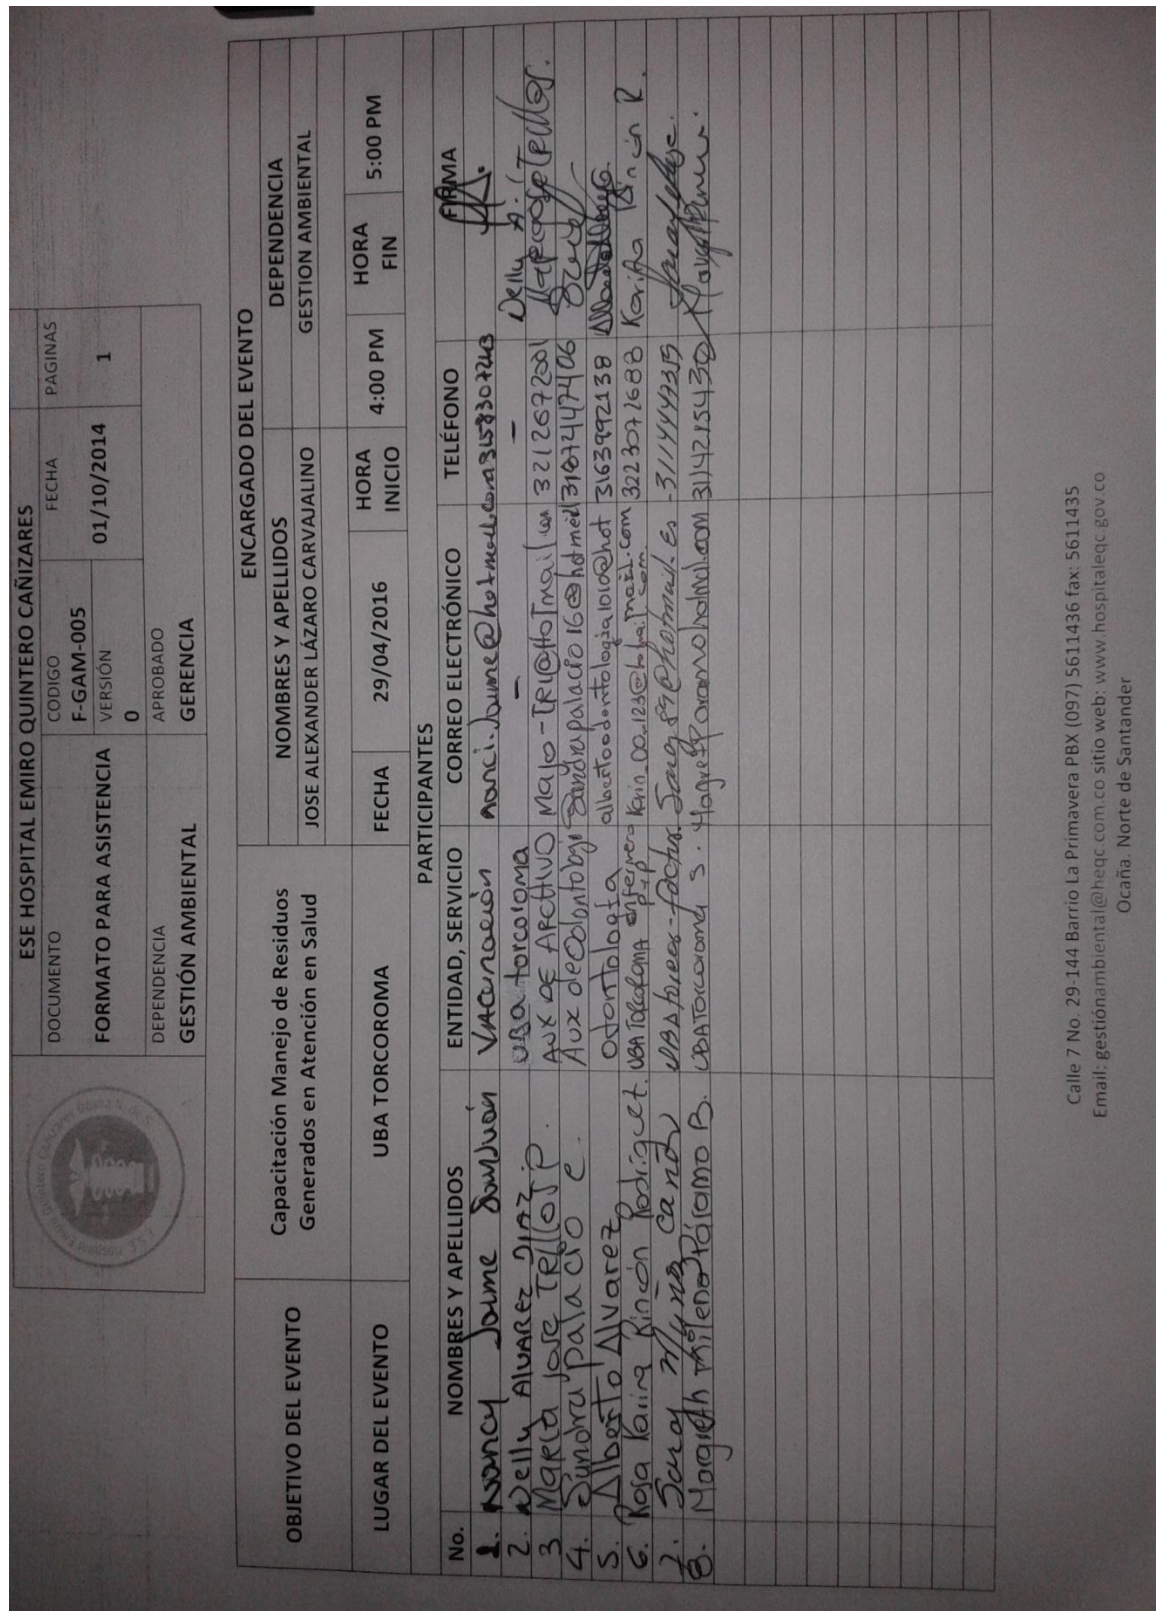 ESE HOSPITAL EMIRO QUINTERO CAÑIZARES
DOCUMENTO CODIGO FECHA PAGINAS
FORMATO PARA ASISTENCIA F-GAM-005 01/10/2014 1
VERSIÓN
0
DEPENDENCIA APROBADO
GESTIÓN AMBIENTAL GERENCIA
OBJETIVO DEL EVENTO Capacitación Manejo de Residuos Generados en Atención en Salud
ENCARGADO DEL EVENTO
NOMBRES Y APELLIDOS DEPENDENCIA
JOSE ALEXANDER LÁZARO CARVAJALINO GESTION AMBIENTAL
LUGAR DEL EVENTO UBA TORCOROMA FECHA 29/04/2016 HORA INICIO 4:00 PM HORA FIN 5:00 PM
PARTICIPANTES
No. NOMBRES Y APELLIDOS ENTIDAD, SERVICIO CORREO ELECTRÓNICO TELÉFONO FIRMA
1. Nancy Jaime Sanjuán Vacunación
2. Nelly ALVAREZ DIAZ UBA torcoroma - - Nelly A.
3 María José Trillos P. AUX DE ARCHIVO Majo-TRI@HoTmail.com 3212672001
4. Sandra palacio C. Aux de Odontologi Sandrapalacio16@hotmail 3187447406
5. Alberto Alvarez Odontología albertoodontologia1010@hot 3163992138
6. Rosa Karina Rincón Rodriguez. UBA TORCOROMA enfermera P+P Karin_00_123@hotmail.com 3223072688 Karina Rincón R.
7. Saray 3114447315
8. Margreth Milena Páramo B. UBA Torcoroma S. 3114215430
Calle 7 No. 29-144 Barrio La Primavera PBX (097) 5611436 fax: 5611435
Email: gestiónambiental@heqc.com.co sitio web: www.hospitaleqc.gov.co
Ocaña. Norte de Santander